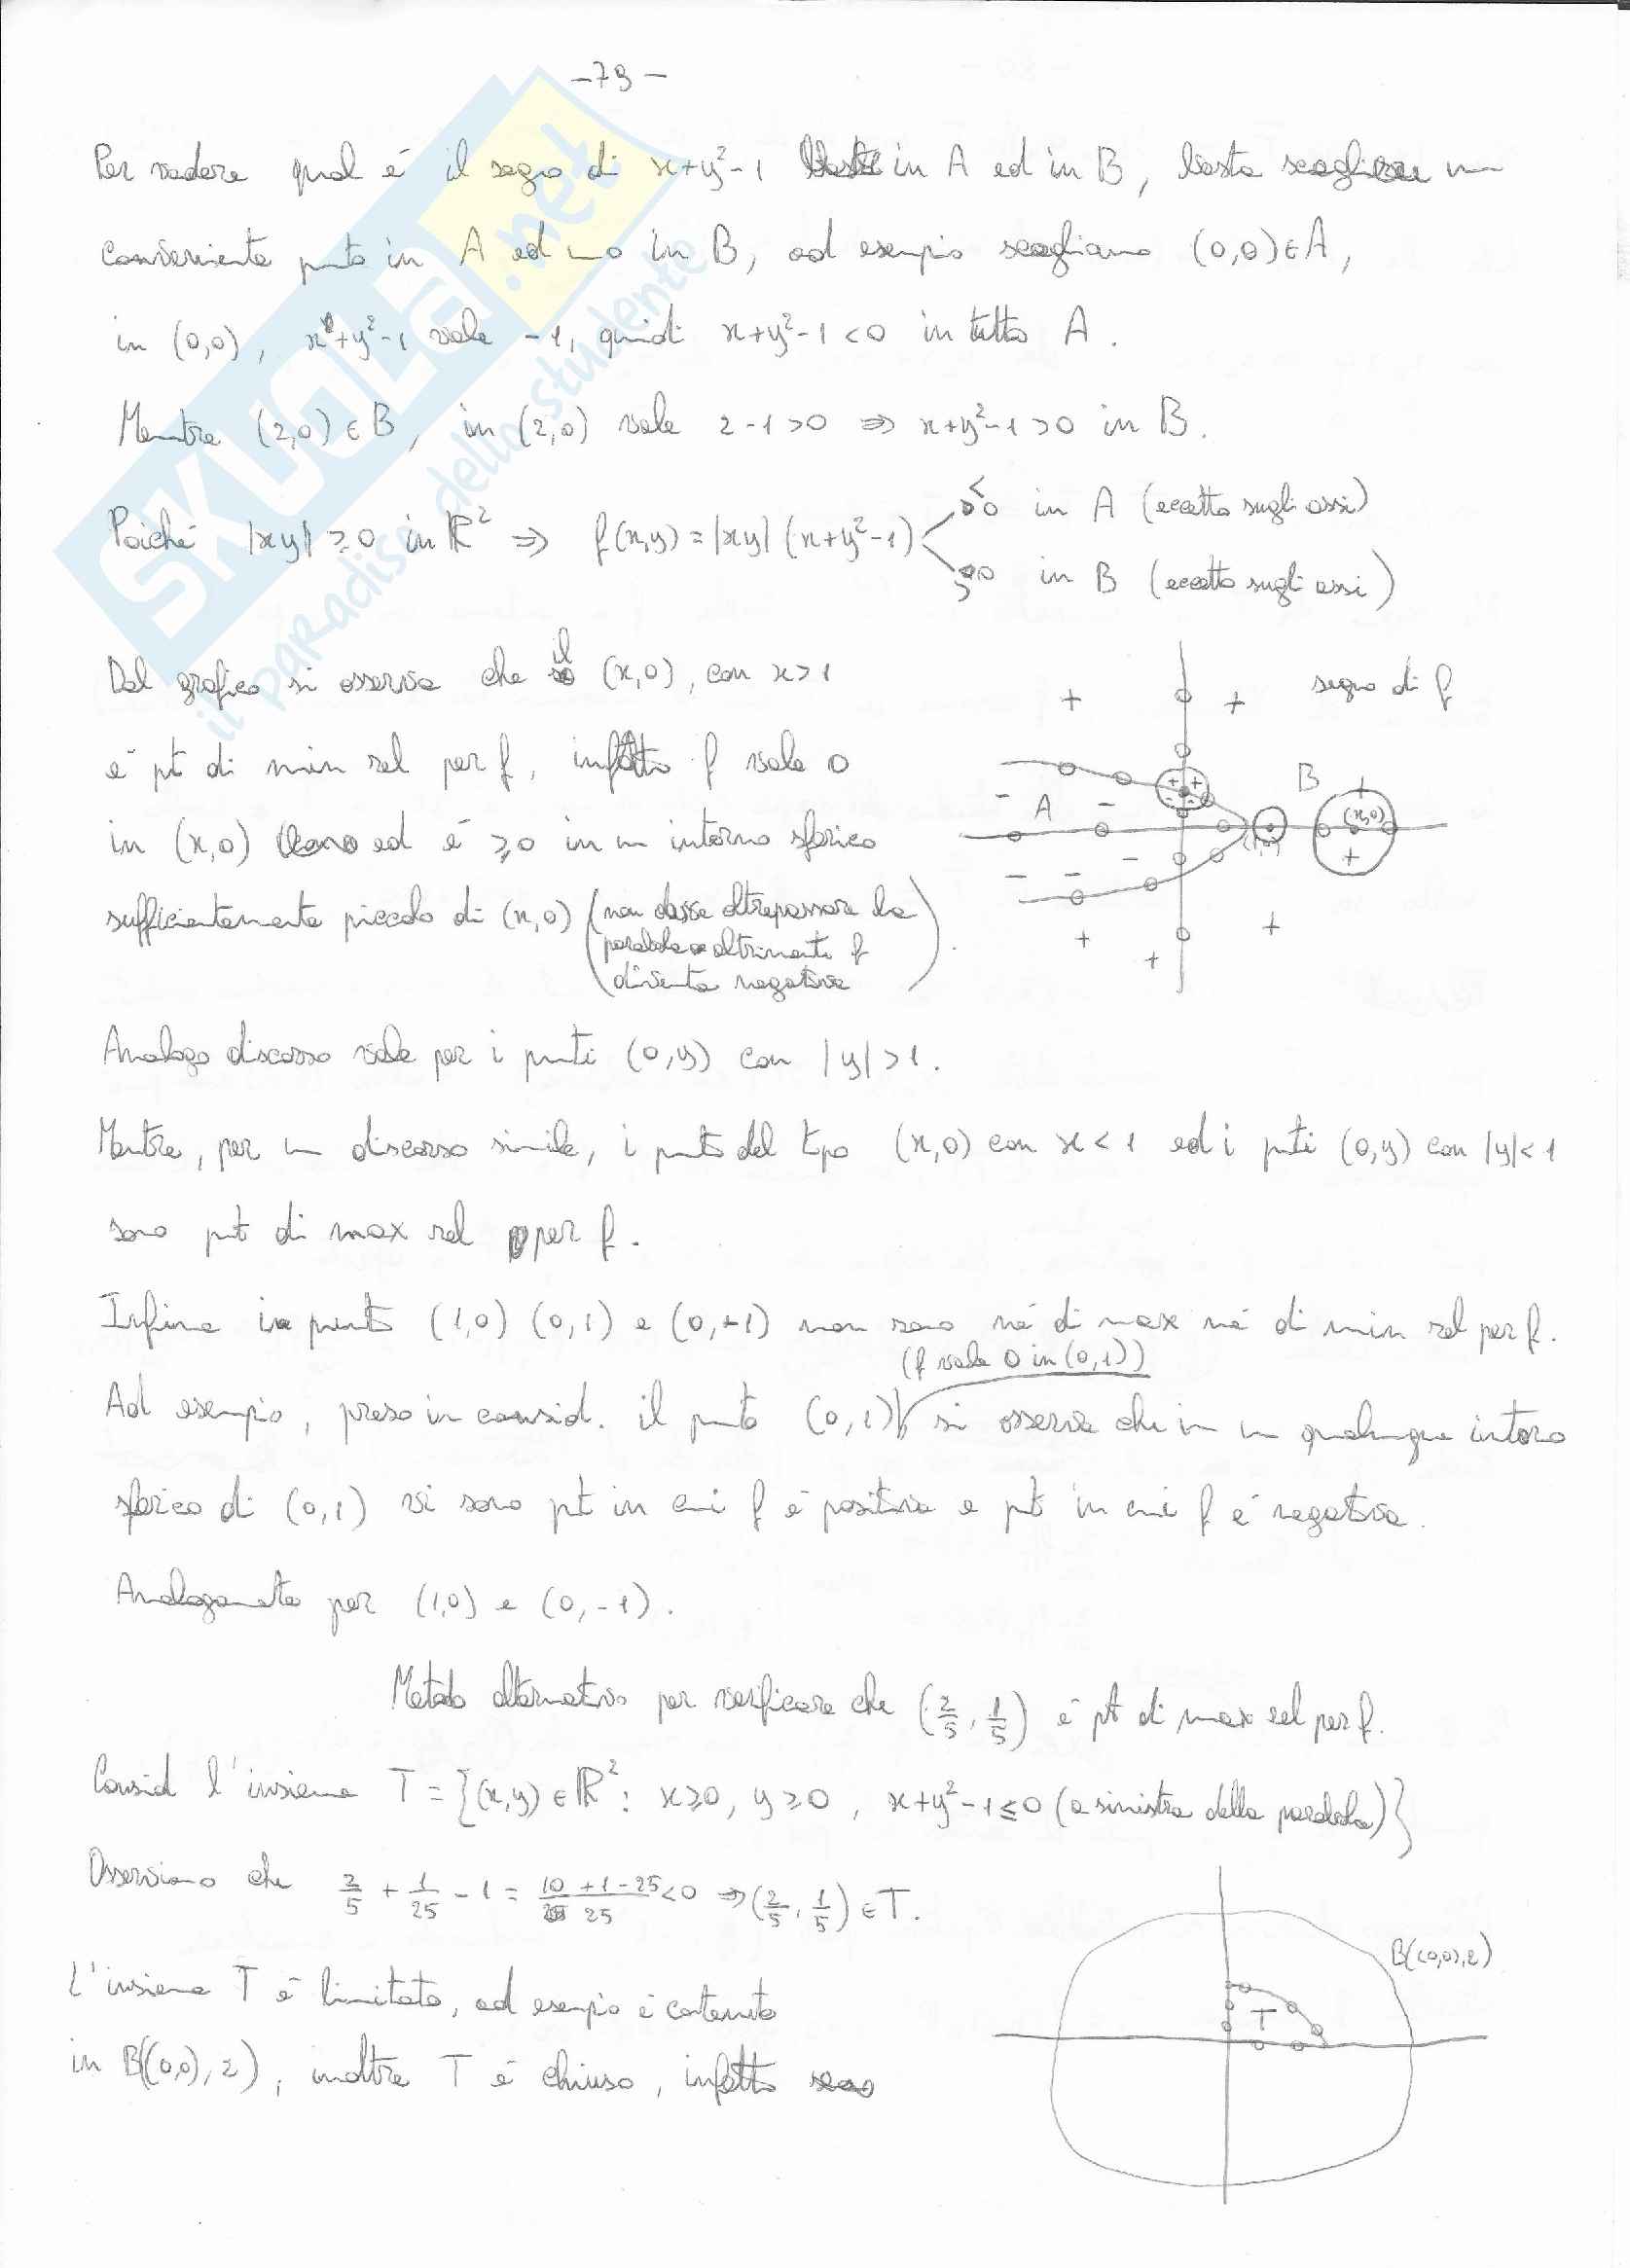 -79-
Per vedere qual è il segno di x+y²-1 in A ed in B, basta scegliere un
conveniente punto in A ed uno in B, ad esempio scegliamo (0,0)∈A,
in (0,0), x+y²-1 vale -1, quindi x+y²-1<0 in tutto A.
Mentre (2,0)∈B, in (2,0) vale 2-1>0 ⇒ x+y²-1>0 in B.
Poiché |xy|≥0 in ℝ² ⇒ f(x,y)=|xy|(x+y²-1)
<0 in A (eccetto sugli assi)
>0 in B (eccetto sugli assi)
Dal grafico si osserva che il (x,0), con x>1
è pt di min rel per f, infatti f vale 0
in (x,0) ed è ≥0 in un intorno sferico
sufficientemente piccolo di (x,0) (non deve oltrepassare la
parabola altrimenti f
diventa negativa).
segno di f
+ +
A
B
(x,0)
Analogo discorso vale per i punti (0,y) con |y|>1.
Mentre, per un discorso simile, i punti del tipo (x,0) con x<1 ed i punti (0,y) con |y|<1
sono pt di max rel per f.
Infine i punti (1,0) (0,1) e (0,-1) non sono né di max né di min rel per f.
(f vale 0 in (0,1))
Ad esempio, preso in consid. il punto (0,1) si osserva che in un qualunque intorno
sferico di (0,1) vi sono pt in cui f è positiva e pt in cui f è negativa.
Analogamente per (1,0) e (0,-1).
Metodo alternativo per verificare che (2/5, 1/5) è pt di max rel per f.
Consid l'insieme T={(x,y)∈ℝ²: x≥0, y≥0, x+y²-1≤0 (a sinistra della parabola)}
Osserviamo che 2/5 + 1/25 - 1 = 10+1-25/25 <0 ⇒ (2/5, 1/5)∈T.
L'insieme T è limitato, ad esempio è contenuto
in B((0,0),2), inoltre T è chiuso, infatti
B((0,0),2)
T
SKUOLA.net
il paradiso dello studente